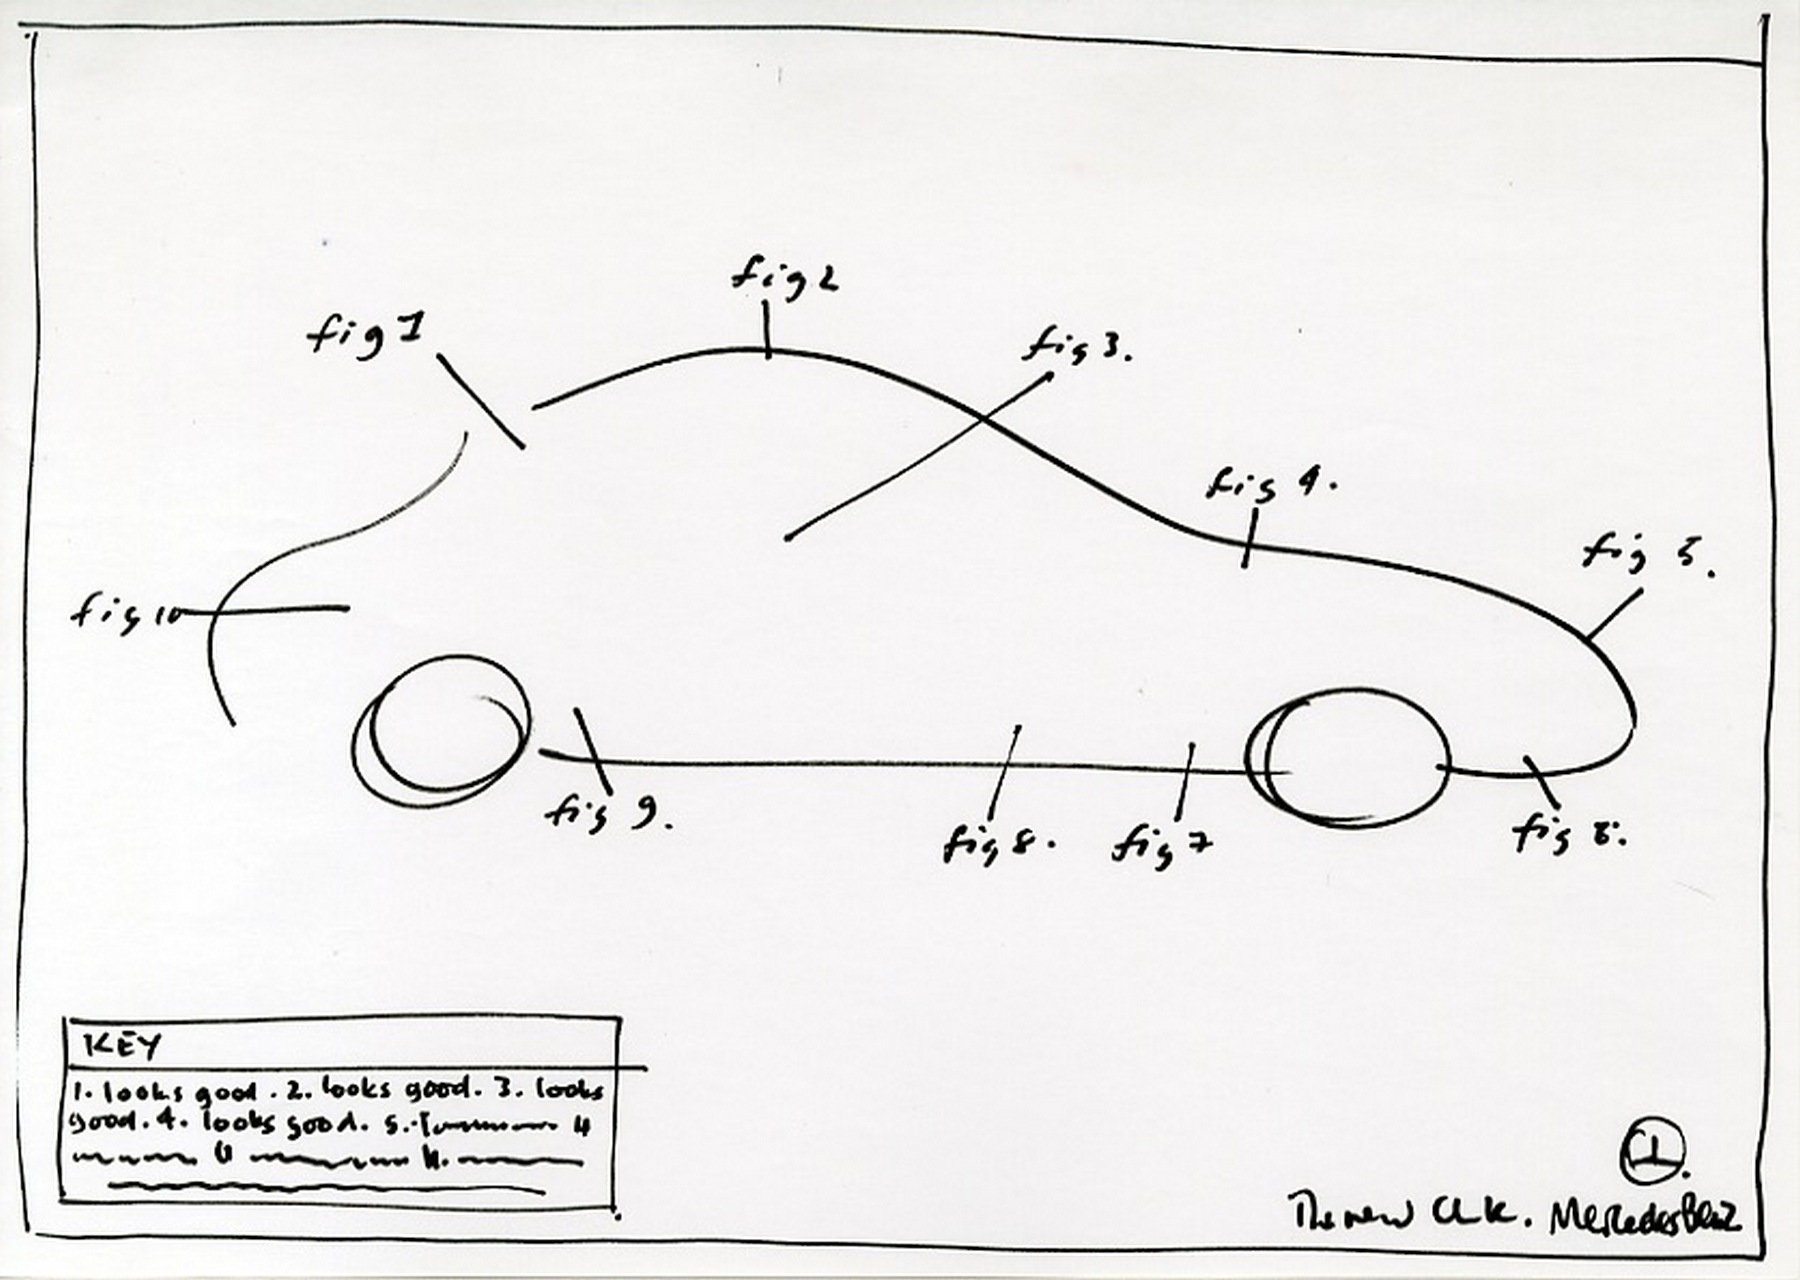 fig 1
fig 2
fig 3.
fig 4.
fig 5.
fig 10
fig 9.
fig 8.
fig 7
fig 6.
KEY
1. looks good. 2. looks good. 3. looks
good. 4. looks good. 5.
The new CLK. Mercedes Benz